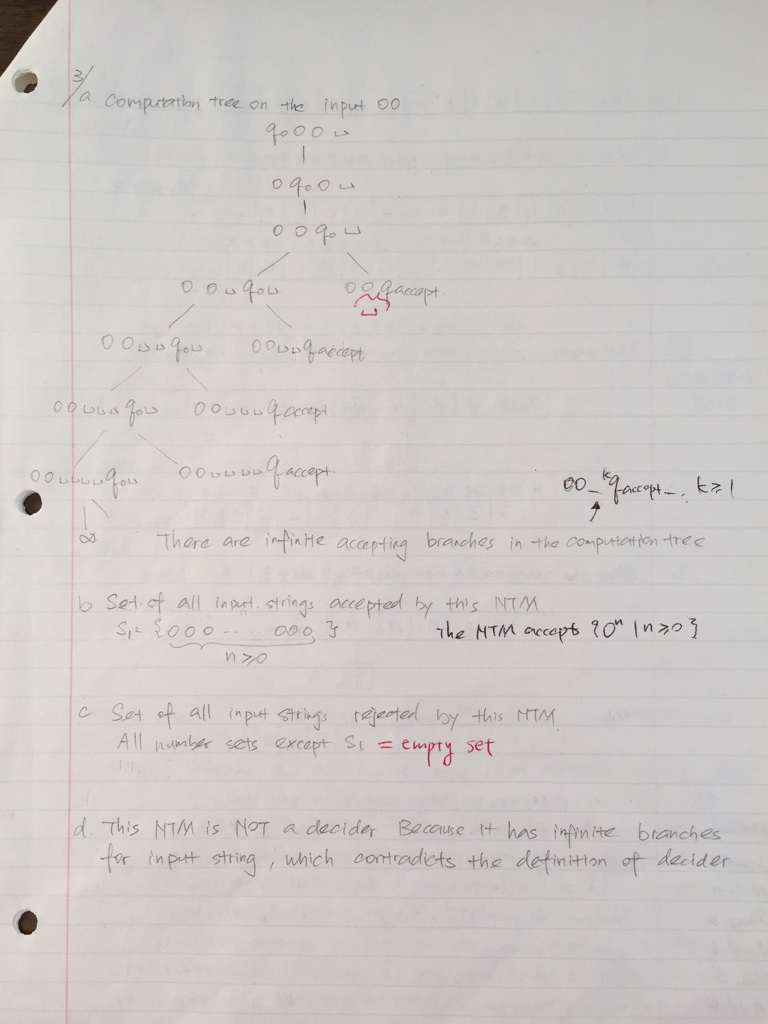 3/a computation tree on the input 00
q₀00⊔
0q₀0⊔
00q₀⊔
00⊔q₀⊔ 00q accept
⊔
00⊔⊔q₀⊔ 00⊔⊔q accept
00⊔⊔⊔q₀⊔ 00⊔⊔⊔q accept
00⊔⊔⊔⊔q₀⊔ 00⊔⊔⊔⊔q accept
00_ᵏq accept_, k≥1
∞ There are infinite accepting branches in the computation tree
b Set of all input strings accepted by this NTM
S₁= {000.....000} The NTM accepts {0ⁿ|n≥0}
n≥0
c Set of all input strings rejected by this NTM
All number sets except S₁ = empty set
d. This NTM is NOT a decider Because it has infinite branches
for input string, which contradicts the definition of decider